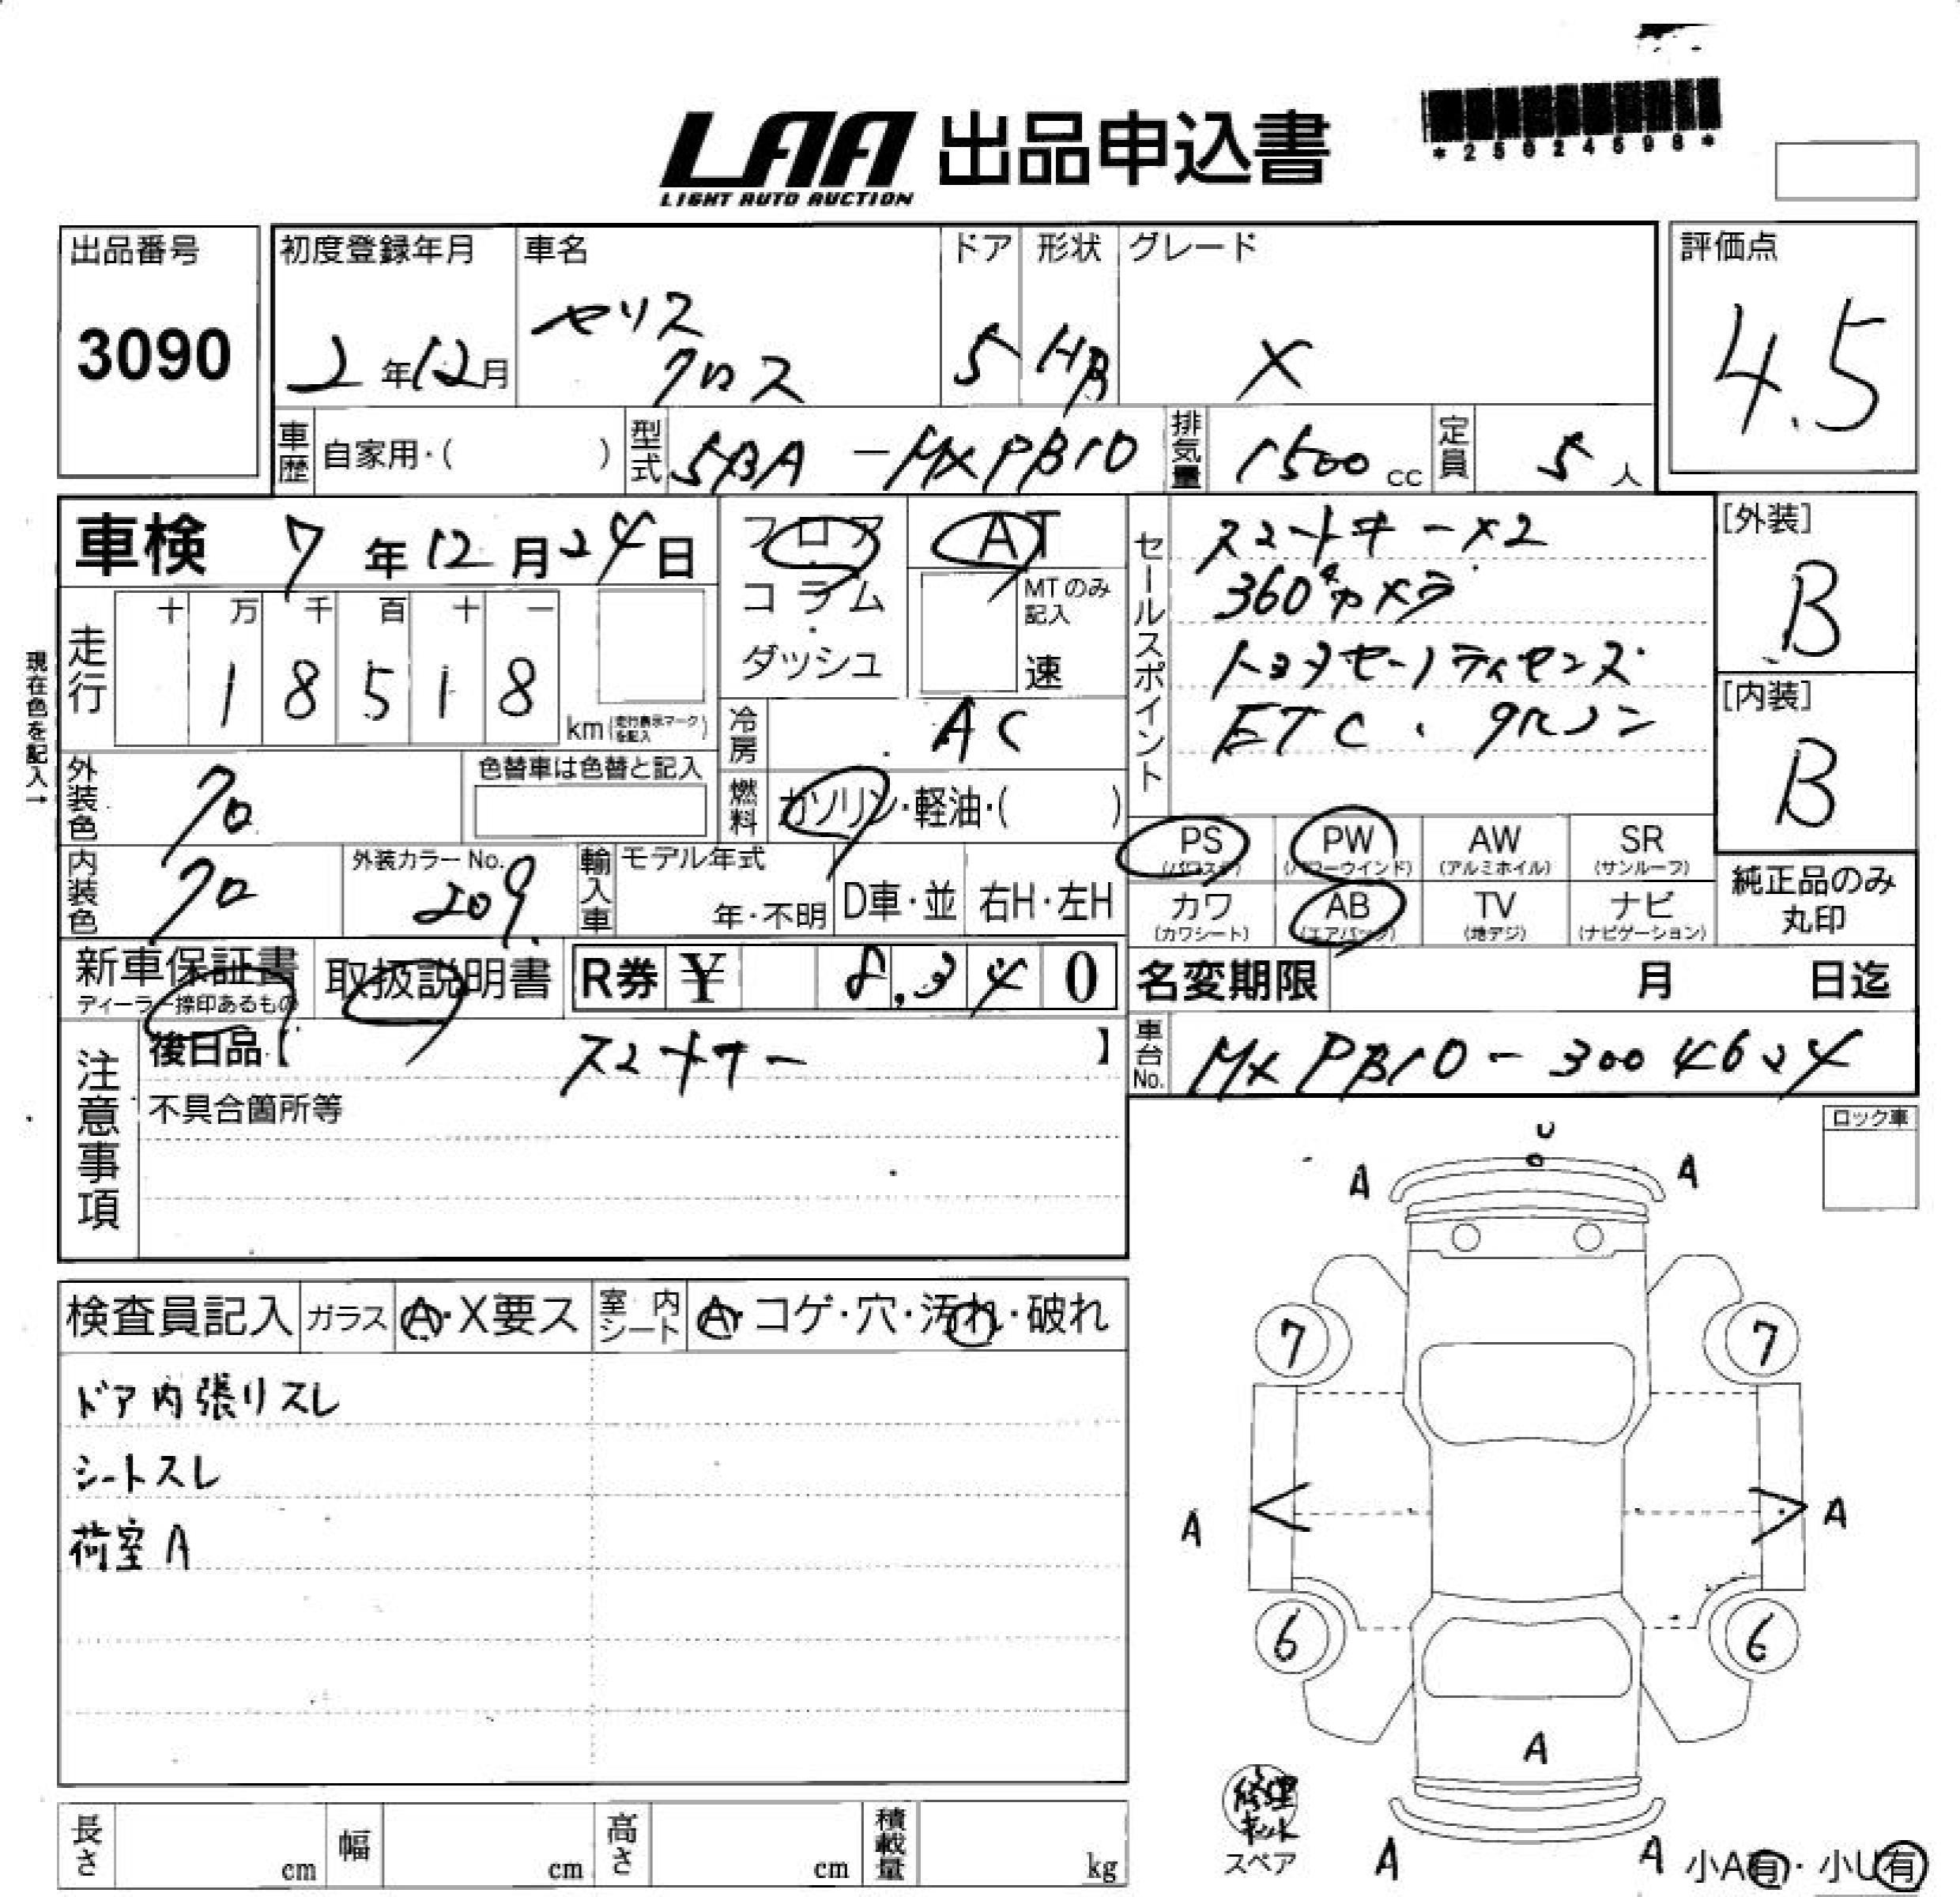 LAA 出品申込書
LIGHT AUTO AUCTION
出品番号 初度登録年月 車名 ドア 形状 グレード 評価点
3090 2年12月 ヤリス クロス 5 HB X 4.5
車歴 自家用・( ) 型式 5BA-MXPB10 排気量 1500cc 定員 5人
車検 7年12月24日
フロア コラム ダッシュ
AT
MTのみ記入
速
走行 十 万 千 百 十 一
18518 km(走行表示マークを記入)
現在色を記入→
冷房 AC
外装色 クロ 色替車は色替と記入
燃料 ガソリン・軽油・( )
内装色 クロ 外装カラーNo. 209
輸入車 モデル年式 年・不明 D車・並 右H・左H
セールスポイント
スマートキー×2
360°カメラ
トヨタセーフティセンス
ETC、
[外装]
B
[内装]
B
PS PW AW SR
(パワステ) (パワーウインド) (アルミホイル) (サンルーフ)
カワ AB TV ナビ
(カワシート) (エアバック) (地デジ) (ナビゲーション)
純正品のみ
丸印
新車保証書 取扱説明書 R券 ¥ 8,340
ディーラー捺印あるもの
名変期限 月 日迄
車台No. MXPB10-3004624
注意事項
後日品【 】
不具合箇所等
ロック車
検査員記入 ガラス A・X要ス 室内シート A・コゲ・穴・汚れ・破れ
ドア内張リスレ
シートスレ
荷室A
U
A A
7 7
A A
6 6
A
修理キット
スペア
A A
小A有・小U有
長さ cm 幅 cm 高さ cm 積載量 kg